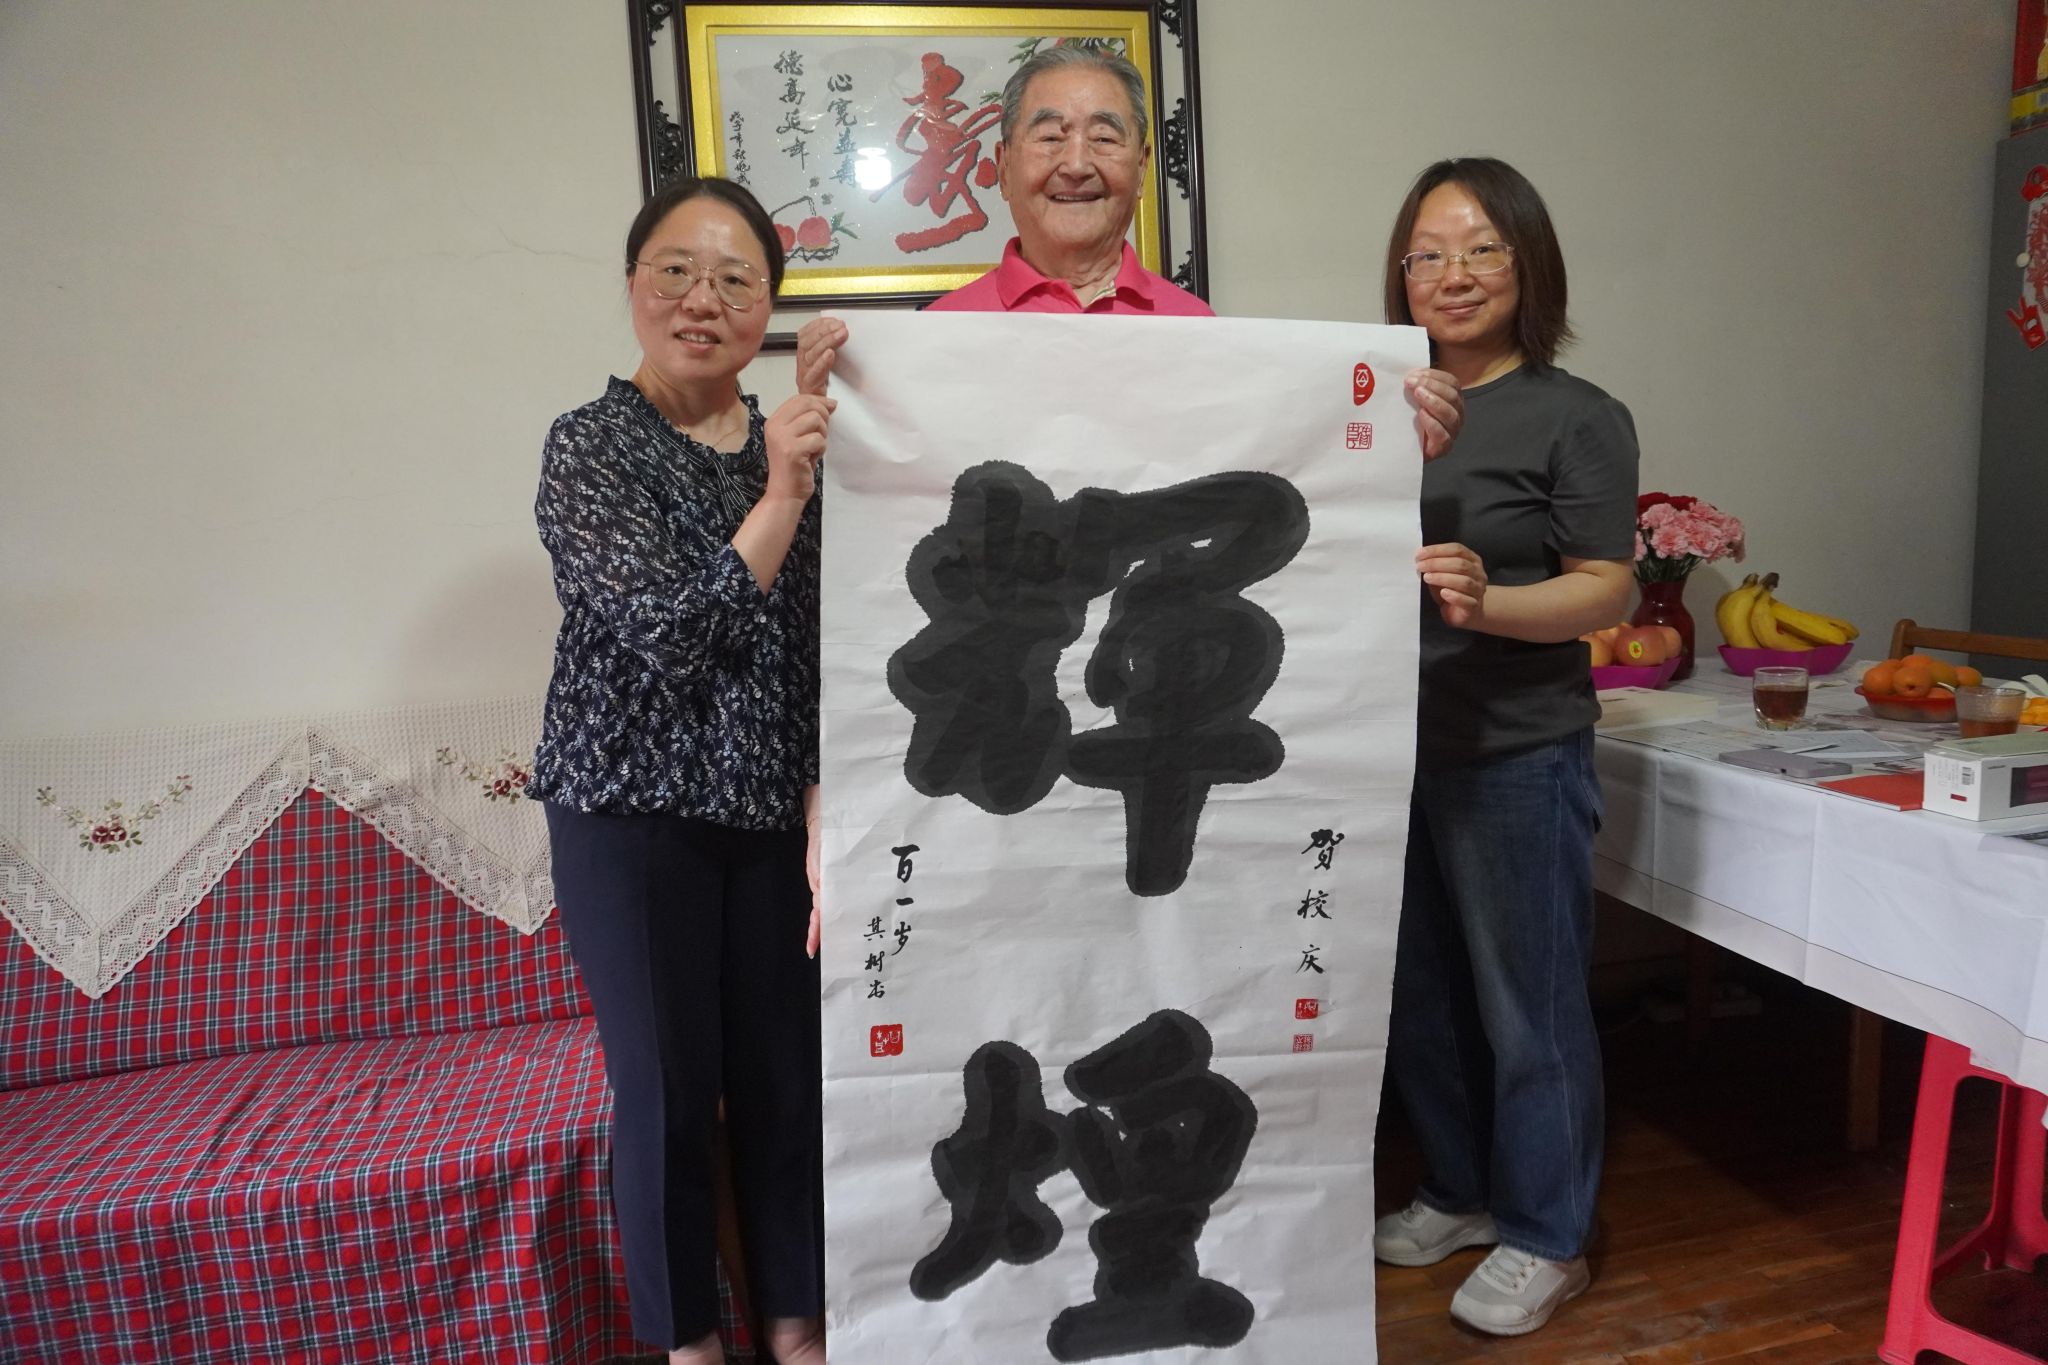 寿
心宽益寿
德高延年
輝煌
贺校庆
百一岁
其树书